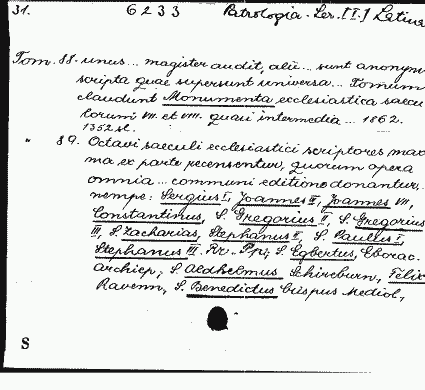 31. 6233 Patrologia. Ser. II.1 Latina
Tom. 88. unus... magister audit, alii... sunt anonym
scripta quae supersunt universa... Tomum
claudunt Monumenta ecclesiastica saecu
lorum VII. et VIII. quasi intermedia... 1862.
1352 sl.
" 89. Octavi saeculi ecclesiastici scriptores max
ma ex parte recensentur, quorum opera
omnia... communi editione donantur.
nempe: Sergius I, Joannes VI, Joannes VII,
Constantinus, S. Gregorius II, S. Gregorius
III, S. Zacharias, Stephanus II, S. Paulus I,
Stephanus III. Rr. Pp; S. Egbertus, Eborac.
archiep; S. Aldhelmus Schireburn, Felix
Ravenn, S. Benedictus Crispus Mediol,
S